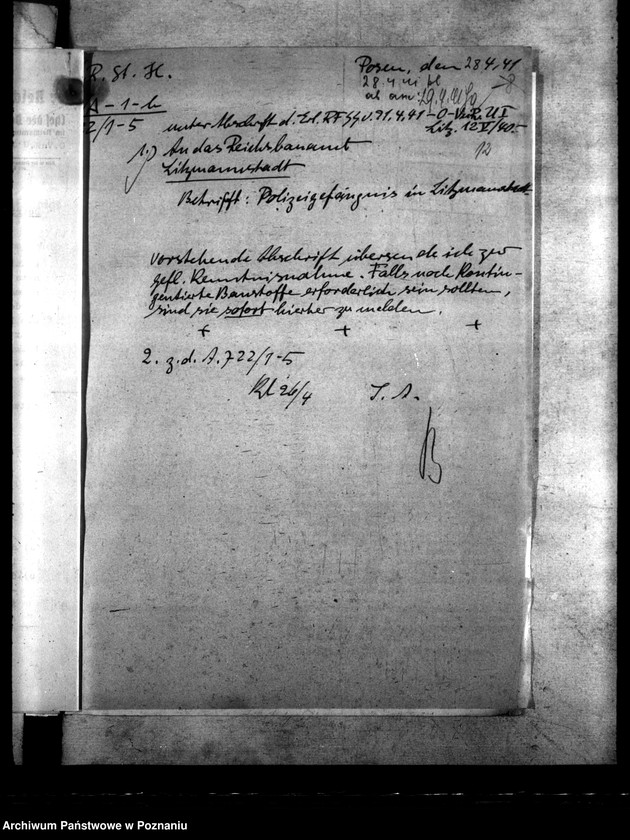 R. St. H.
Posen, den 28.4.41
28.4.41
ab am: 29.4.41
A-1-b
2/1-5
unter Abschrift d. Erl. RFSS v. 21.4.41 – O-VuR. U I
Litz. 12 V/40.–
12
1.) An das Reichsbauamt
Litzmannstadt
Betrifft: Polizeigefängnis in Litzmannstadt
Vorstehende Abschrift übersende ich zur
gefl. Kenntnisnahme. Falls noch Kontin-
gentierte Baustoffe erforderlich sein sollten,
sind sie sofort hierher zu melden.
+ + +
2. z.d. A. 722/1-5
Kl 26/4 I. A.
Archiwum Państwowe w Poznaniu